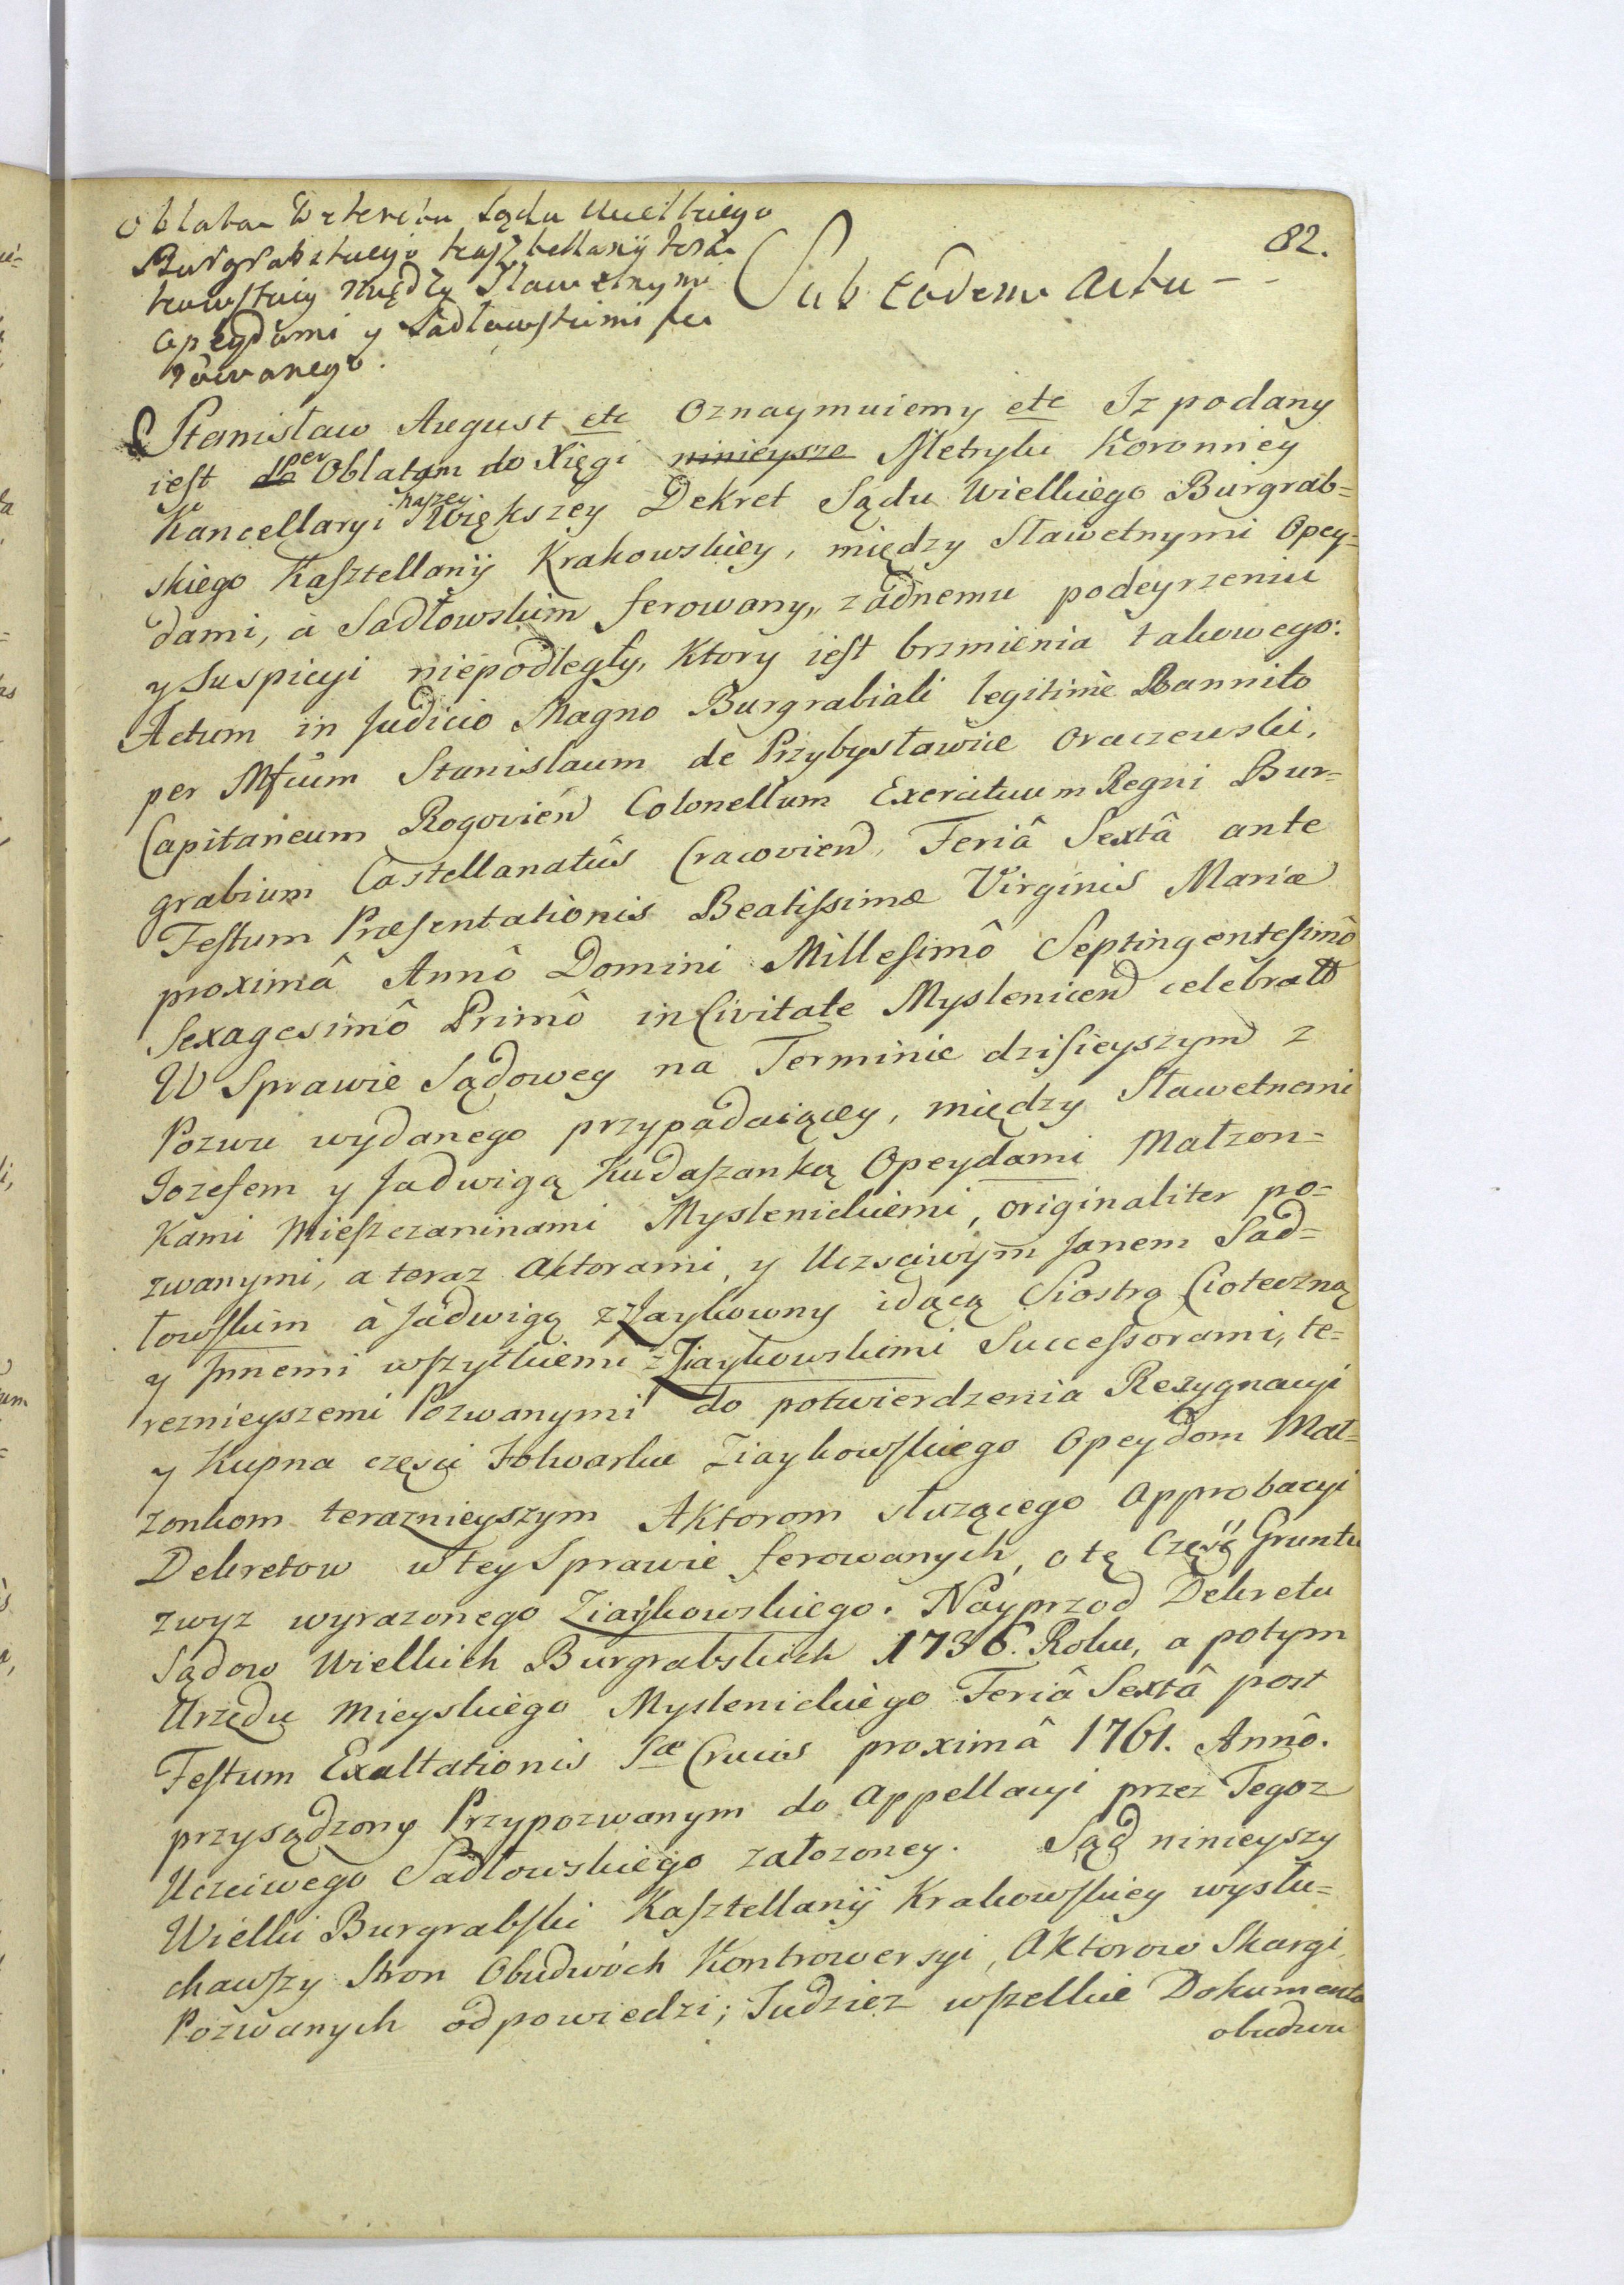 82.
Oblata Dekretu Sądu Wielkiego
Burgrabskiego Kasztellanij Kra-
kowskiey między Sławetnymi
Opeydami y Sadłowskimi fe-
rowanego.
Sub Eodem Actu - -
Stanisław August etc Oznaymuiemy etc Iz podany
iest per Oblatam do Xięgi ninieysze Metryki Koronney
Kancellaryi naszey Większey Dekret Sądu Wielkiego Burgrab=
skiego Kasztellanij Krakowskiey, między Sławetnymi Opey=
dami, à Sadłowskim ferowany, zadnemu podeyrzeniu
y Suspicyi niepodległy, Ktory iest brzmienia takowego:
Actum in Judicio Magno Burgrabiali legitimè Bannito
per Mfcum Stanislaum de Przybysławice Oraczewski,
Capitaneum Rogovien Colonellum Exercituum Regni Bur=
grabium Castellanatûs Cracovien, Feriâ Sextâ ante
Festum Præsentationis Beatissimæ Virginis Mariæ
proximâ Annô Domini Millesimô Septingentesimô
Sexagesimô Primô in Civitate Myslenicen celebratô
W Sprawie Sądowey na Terminie dzisieyszym z
Pozwu wydanego przypadaiącey, między Sławetnemi
Jozefem y Jadwigą Kudaszanką Opeydami Małzon=
kami Mieszczaninami Myslenickiemi, originaliter po=
zwanymi, a teraz Aktorami, y Uczsciwym Janem Sad=
łowskim à Jadwigą z Ziaykowny idącą Siostrą Cioteczną
y Jnnemi wszytkiemi z Ziaykowskimi Successorami, te=
reznieyszemi Pozwanymi do potwierdzenia Rezygnacyi
y Kupna częsci Folwarku Ziaykowskiego Opeydom Mał=
zonkom teraznieyszym Aktorom słuzącego Approbacyi
Dekretow w tey Sprawie ferowanych, o tę Częsć Gruntu
zwyz wyrazonego Ziaykowskiego. Nayprzod Dekretu
Sądow Wielkich Burgrabskich 1736. Roku, a potym
Urzędu Mieyskiego Myslenickiego Feriâ Sextâ post
Festum Exaltationis Sæ Crucis proximâ 1761. Annô.
przysądzony Przypozwanym do Appellacyi przez Tegoz
Uczciwego Sadłowskiego załozoney. Sąd ninieyszy
Wielki Burgrabski Kasztellanij Krakowskiey wysłu=
chawszy Stron Obudwóch Kontrowersyi, Aktorow Skargi,
Pozwanych odpowiedzi; Tudziez wszelkie Dokumenta
obudwu